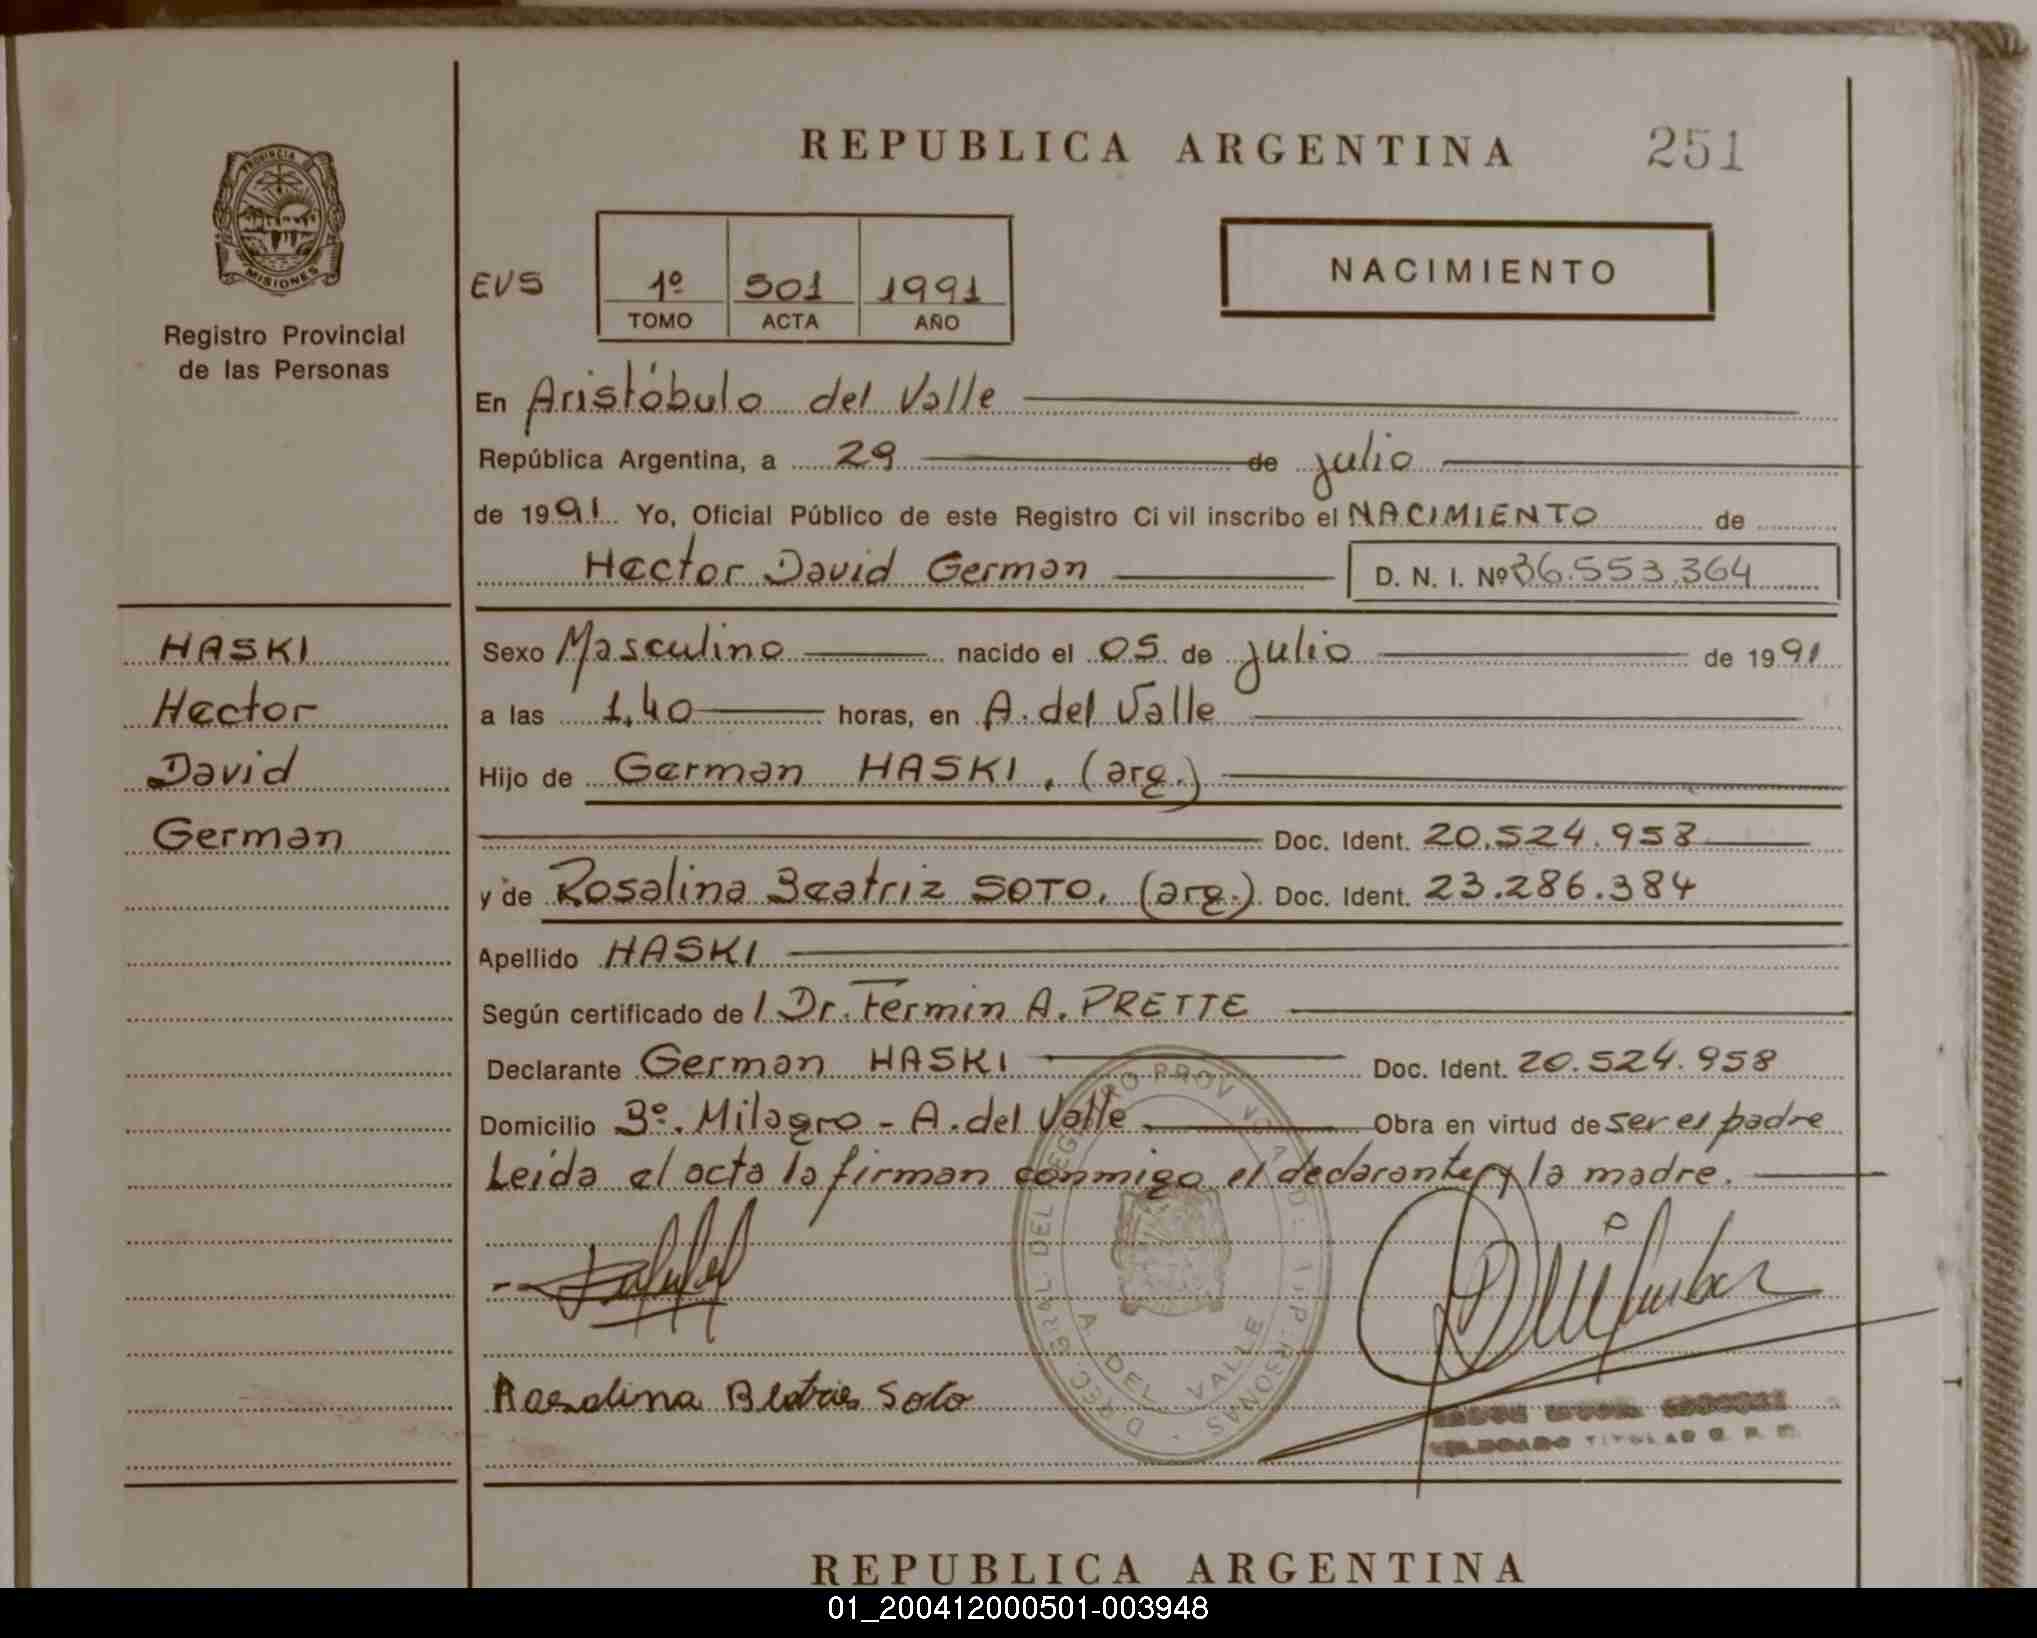 REPUBLICA ARGENTINA 251
PROVINCIA
MISIONES
Registro Provincial
de las Personas
EVS 1º 501 1991
TOMO ACTA AÑO
NACIMIENTO
En Aristóbulo del Valle
República Argentina, a 29 de julio
de 1991. Yo, Oficial Público de este Registro Civil inscribo el NACIMIENTO de
Hector David German D. N. I. Nº 36.553.364
HASKI
Hector
David
German
Sexo Masculino nacido el 05 de julio de 1991
a las 1,40 horas, en A. del Valle
Hijo de German HASKI, (arg.)
Doc. Ident. 20.524.958
y de Rosalina Beatriz SOTO, (arg.) Doc. Ident. 23.286.384
Apellido HASKI
Según certificado de l Dr. Fermin A. PRETTE
Declarante German HASKI Doc. Ident. 20.524.958
Domicilio Bº. Milagro - A. del Valle Obra en virtud de ser el padre
Leída el acta la firman conmigo el declarante y la madre.
A. DEL VALLE
Rosalina Beatris Soto
TITULAR
REPUBLICA ARGENTINA
01_200412000501-003948